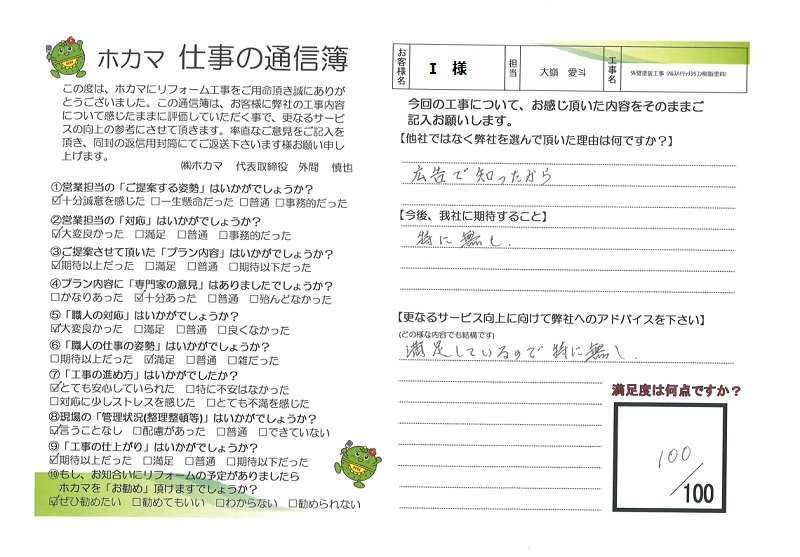 ホカマ 仕事の通信簿
この度は、ホカマにリフォーム工事をご用命頂き誠にありが
とうございました。この通信簿は、お客様に弊社の工事内容
について感じたままに評価していただく事で、更なるサービ
スの向上の参考にさせて頂きます。率直なご意見をご記入を
頂き、同封の返信用封筒にてご返送下さいます様お願い申
し上げます。
㈱ホカマ 代表取締役 外間 慎也
①営業担当の「ご提案する姿勢」はいかがでしょうか?
☑十分誠意を感じた □一生懸命だった □普通 □事務的だった
②営業担当の「対応」はいかがでしょうか?
☑大変良かった □満足 □普通 □事務的だった
③ご提案させて頂いた「プラン内容」はいかがでしょうか?
☑期待以上だった □満足 □普通 □期待以下だった
④プラン内容に「専門家の意見」はありましたでしょうか?
□かなりあった ☑十分あった □普通 □殆んどなかった
⑤「職人の対応」はいかがでしょうか?
☑大変良かった □満足 □普通 □良くなかった
⑥「職人の仕事の姿勢」はいかがでしょうか?
□期待以上だった ☑満足 □普通 □雑だった
⑦「工事の進め方」はいかがでしたか?
☑とても安心していられた □特に不安はなかった
□対応に少しストレスを感じた □とても不満を感じた
⑧現場の「管理状況(整理整頓等)」はいかがでしょうか?
☑言うことなし □配慮があった □普通 □できていない
⑨「工事の仕上がり」はいかがでしょうか?
☑期待以上だった □満足 □普通 □期待以下だった
⑩もし、お知合いにリフォームの予定がありましたら
ホカマを「お勧め」頂けますでしょうか?
☑ぜひ勧めたい □勧めてもいい □わからない □勧められない
お客様名 I 様 担当 大嶺 愛斗 工事名
今回の工事について、お感じ頂いた内容をそのままご
記入お願いします。
【他社ではなく弊社を選んで頂いた理由は何ですか?】
広告で知ったから
【今後、我社に期待すること】
特に無し.
【更なるサービス向上に向けて弊社へのアドバイスを下さい】
(どの様な内容でも結構です)
満足しているので特に無し.
満足度は何点ですか?
100/100